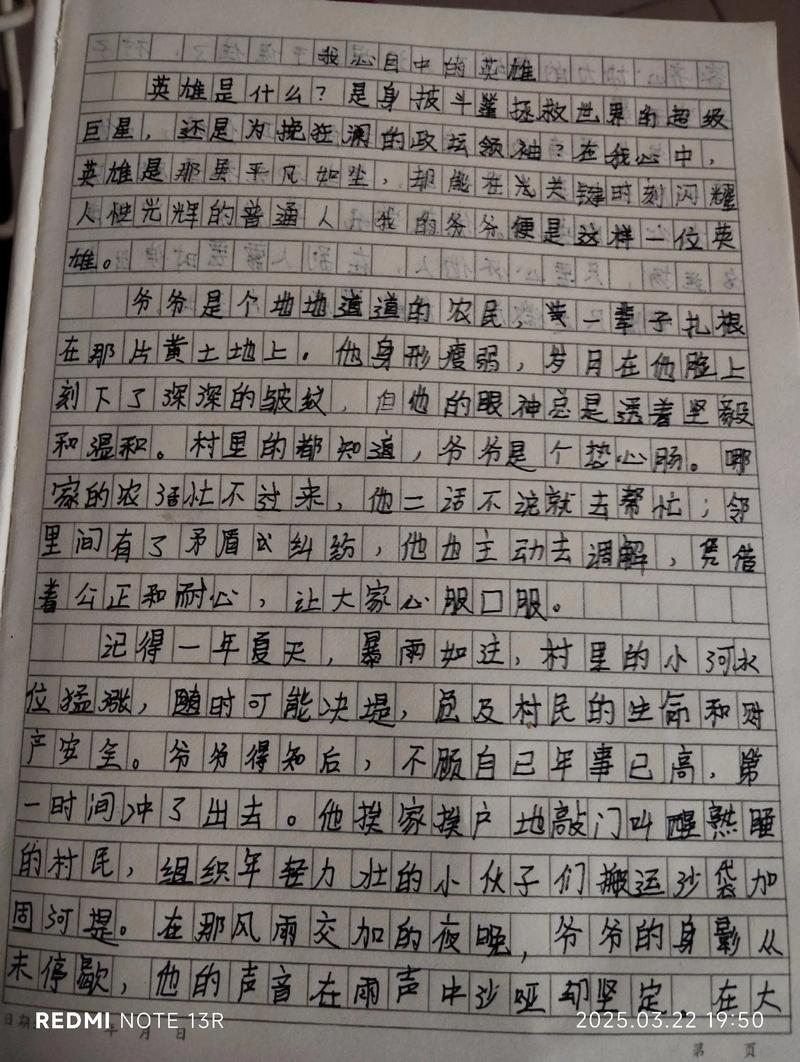 我心目中的英雄
英雄是什么？是身披斗篷拯救世界的超级
巨星，还是为挽狂澜的政坛领袖？在我心中，
英雄是那看平凡如尘，却能在光关键时刻闪耀
人性光辉的普通人，我的爷爷便是这样一位英
雄。
爷爷是个地地道道的农民，一辈子扎根
在那片黄土地上。他身形瘦弱，岁月在他脸上
刻下了深深的皱纹，但他的眼神总是透着坚毅
和温和。村里的都知道，爷爷是个热心肠。哪
家的农活忙不过来，他二话不说就去帮忙；邻
里间有了矛盾或纠纷，他也主动去调解，凭借
着公正和耐心，让大家心服口服。
记得一年夏天，暴雨如注，村里的小河水
位猛涨，随时可能决堤，危及村民的生命和财
产安全。爷爷得知后，不顾自己年事已高，第
一时间冲了出去。他挨家挨户地敲门叫醒熟睡
的村民，组织年轻力壮的小伙子们搬运沙袋加
固河堤。在那风雨交加的夜晚，爷爷的身影从
未停歇，他的声音在雨声中沙哑却坚定，在大
日期
年 月 日
第 页
REDMI NOTE 13R
2025.03.22 19:50